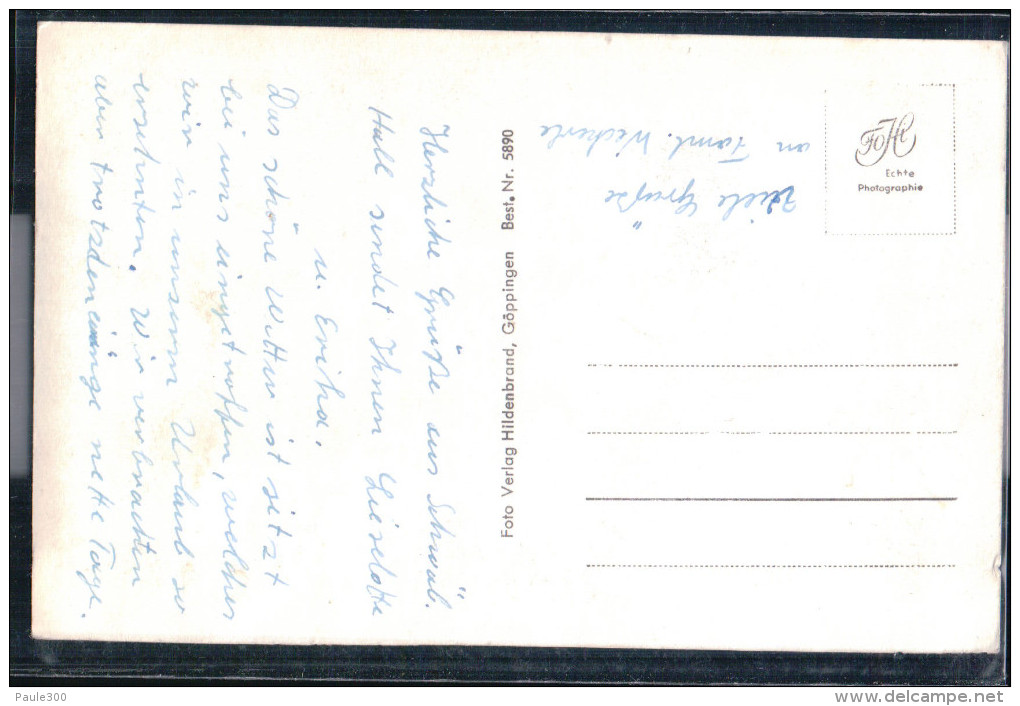 Herzliche Grüße aus Schwäb.
Hall sendet Ihnen Liselotte
u. Erika.
Das schöne Wetter ist jetzt
bei uns eingetroffen, welches
wir in unserm Urlaub so
ersehnten. Wir verbrachten
aber trotzdem einige nette Tage.
Foto Verlag Hildenbrand, Göppingen Best. Nr. 5890
Viele Grüße
an Faml. Weckerle
FOHI
Echte
Photographie
Paule300
www.delcampe.net